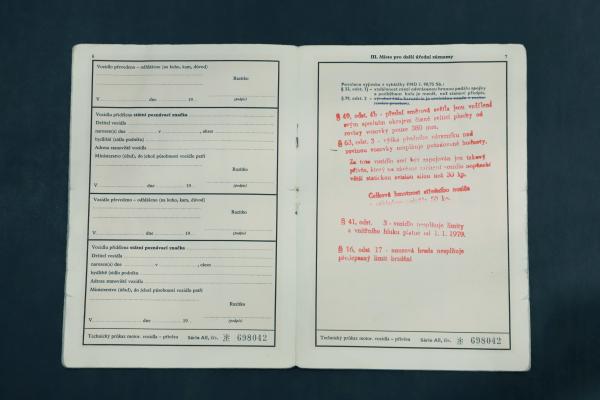 6
Vozidlo převedeno – odhlášeno (na koho, kam, důvod)
Razítko
V dne 19
(podpis)
Vozidlu přidělena státní poznávací značka
Držitel vozidla
narozen(a) dne v , okres
bydliště (sídlo podniku)
Adresa stanoviště vozidla
Ministerstvo (úřad), do jehož působnosti vozidlo patří
Razítko
V dne 19
(podpis)
Vozidlo převedeno – odhlášeno (na koho, kam, důvod)
Razítko
V dne 19
(podpis)
Vozidlu přidělena státní poznávací značka
Držitel vozidla
narozen(a) dne v , okres
bydliště (sídlo podniku)
Adresa stanoviště vozidla
Ministerstvo (úřad), do jehož působnosti vozidlo patří
Razítko
V dne 19
(podpis)
Technický průkaz motor. vozidla – přívěsu Série AE, čís. 698042
III. Místo pro další úřední záznamy 7
Povolena výjimka z vyhlášky FMD č. 90/75 Sb.:
§ 49, odst. 4b - přední směrová světla jsou vzdálena
svým spodním okrajem činné svítící plochy od
roviny vozovky pouze 380 mm.
§ 63, odst. 3 - výška předního nárazníku nad
rovinou vozovky nesplňuje požadované hodnoty.
Za toto vozidlo smí být zapojován jen takový
přívěs, který na závěsné zařízení vozidla nepůsobí
větší statickou svislou silou než 50 kp.
Celková hmotnost střešního nosiče
50 kg.
§ 41, odst. 3 - vozidlo nesplňuje limity
vnitřního hluku platné od 1. 1. 1979.
§ 16, odst 17 - nesplňuje
předepsaný limit
Technický průkaz motor. vozidla – přívěsu Série AE, čís. 698042